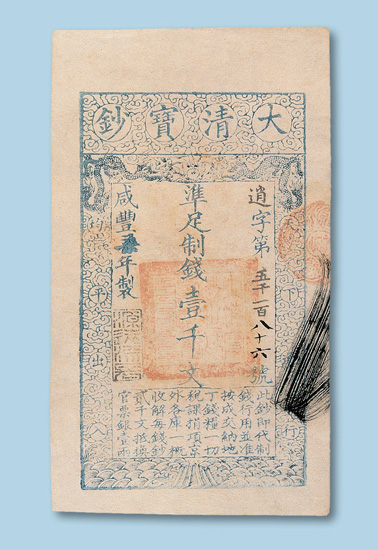 大清寶鈔
天下行
逍字第五千一百八十六號
準足制錢壹千文
咸豐年製
均平出入
此鈔即代制
錢行用並准
按成交納地
丁錢糧一切
稅課捐項京
外各庫一概
收解每錢鈔
貳千文抵換
官票銀壹兩